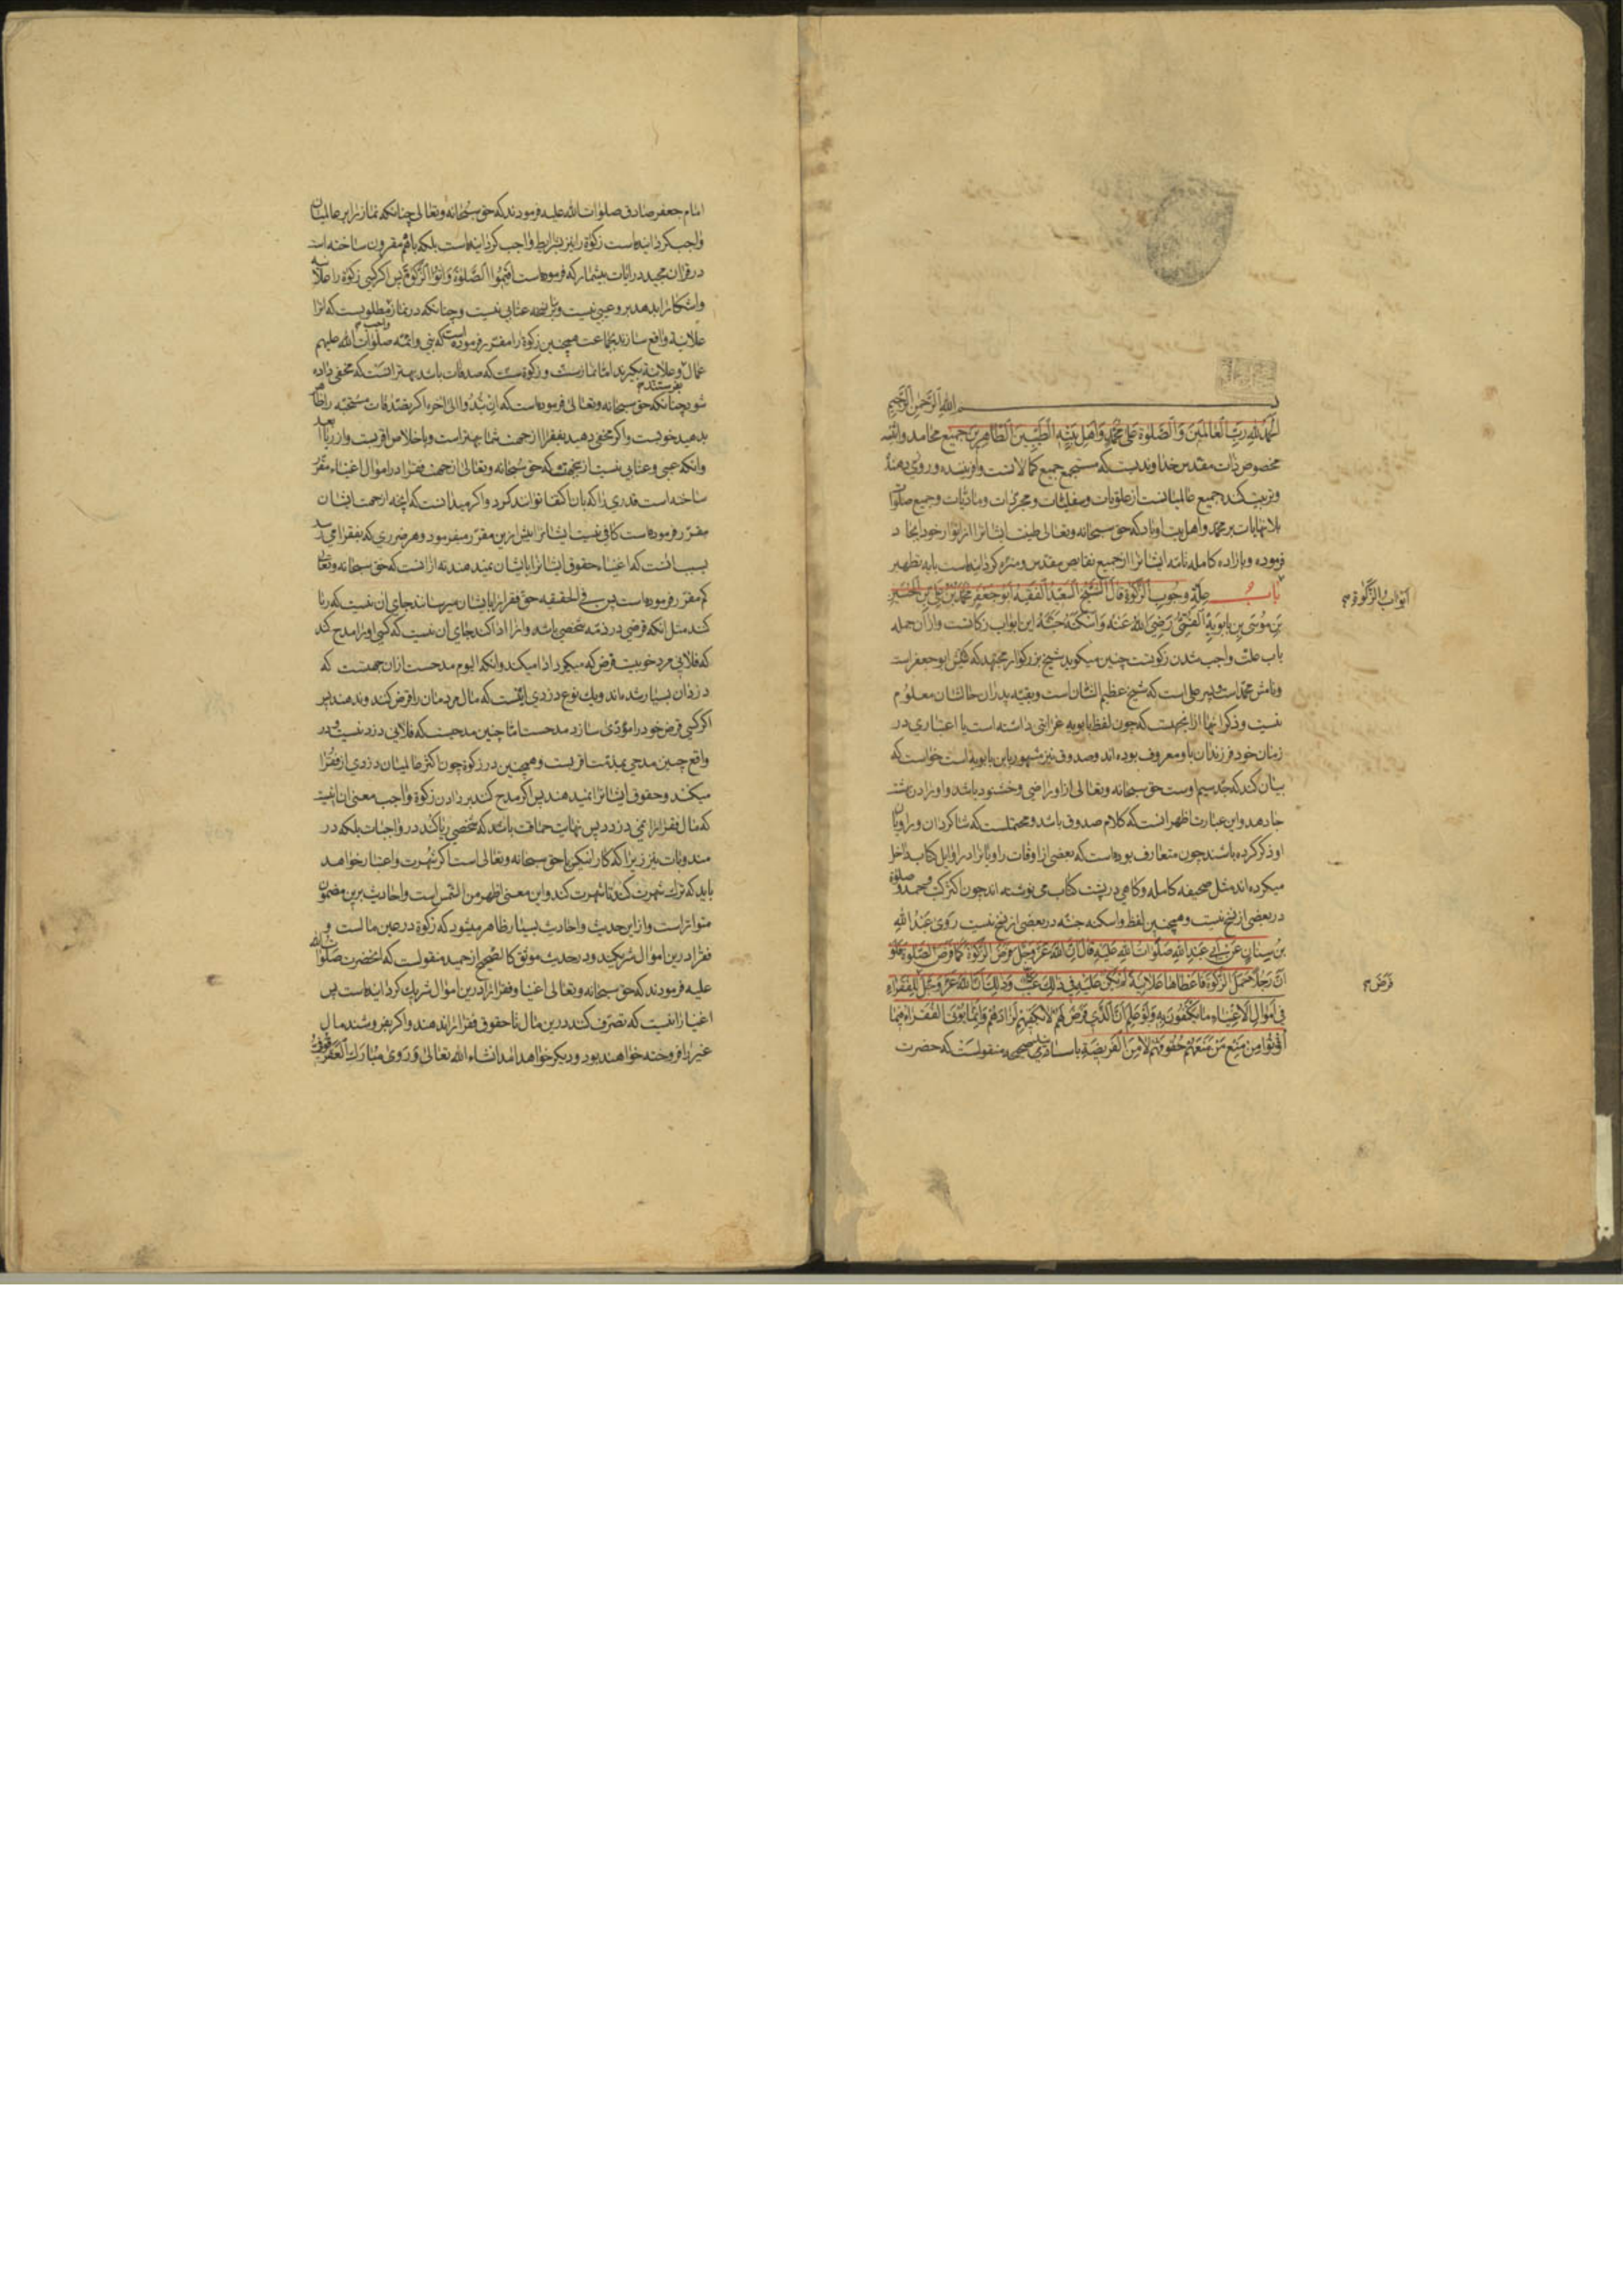 بسم الله الرحمن الرحیم
الحمد لله رب العالمین و الصلوة علی محمد و اهل بیته الطیبین الطاهرین جمیع محامد و اثنیه
مخصوص ذات مقدس خداوندیست که مستجمع جمیع کمالاتست و افریننده و روزی دهنده
و تربیت کننده جمیع عالمیانست از علویات و سفلیات و مجردات و مادیات و جمیع صلوات
بلا نهایات بر محمد و اهل بیت او باد که حق سبحانه و تعالی طینت ایشانرا از انوار خود ایجاد
فرموده و باراده کامله تامه ایشانرا از جمیع نقایص مقدس و منزه کردانیده است بایه تطهیر
ابواب الزکوة م
باب علة وجوب الزکوة قال الشیخ السعید الفقیه ابو جعفر محمد بن علی بن الحسین
بن موسی بن بابویه القمی رضی الله عنه و اسکنه جنته این ابواب زکاتست و ازان جمله
باب علت واجب شدن زکوتست چنین میکوید شیخ بزرکوار مجتهد که کنیتش ابو جعفر است
و نامش محمد است و پسر علی است که شیخ عظیم الشان است و بقیه پدران حالشان معلوم
نیست و ذکر انها از انجهتست که چون لفظ بابویه غرابتی داشته است یا اعتباری در
زمان خود فرزندان باو معروف بوده اند و صدوق نیز مشهور بابن بابویه است خواست که
بیان کند که جد سیم اوست حق سبحانه و تعالی از او راضی و خشنود باشد و او را در بهشت
جا دهد و این عبارت اظهر انست که کلام صدوق باشد و محتملست که شاکردان و راویان
او ذکر کرده باشند چون متعارف بوده است که بعضی از اوقات راویانرا در اوایل کتاب داخل
میکرده اند مثل صحیفه کامله و کاهی در پشت کتاب می نوشته اند چون اکثر کتب و حمد و صلوة
در بعضی از نسخ نیست و همچنین لفظ و اسکنه جنته در بعضی از نسخ نیست روی عبد الله
بن سنان عن ابی عبد الله صلوات الله علیه قال ان الله عز و جل فرض الزکوة کما فرض الصلوة فلو
ان رجلا حمل الزکوة فاعطاها علانیة لم یکن علیه فی ذلک عیب و ذلک ان الله عز و جل للفقراء
فرض م
فی اموال الاغنیاء ما یکتفون به و لو علم ان الذی فرض لهم لا یکفیهم لزادهم و انما یؤتی الفقراء فیما
اوتوا من منع من منعهم حقوقهم لا من الفریضة باسانید صحیحه منقولست که حضرت
امام جعفر صادق صلوات الله علیه فرمودند که حق سبحانه و تعالی چنانکه نماز را بر عالمیان
واجب کردانیده است زکوة را نیز بشرایط واجب کردانیده است بلکه با هم مقرون ساخته است
در قران مجید در ایات بیشمار که فرموده است اقیموا الصلوة و اتوا الزکوة پس اکر کسی زکوة را علانیه
و اشکارا بدهد بر و عیبی نیست و عتابی نیست و چنانکه در نماز مطلوبست که انرا
علانیه واقع سازند بجماعت همچنین زکوة را مقرر فرموده است که نبی و ائمه صلوات الله علیهم
عمال بفرستند م و علانیة بکیرند اما نماز سنت و زکوة سنت که صدقات باشد بهتر انست که مخفی داده
شود چنانکه حق سبحانه و تعالی فرموده است که ان تبدوا الی اخره اکر تصدقات مستحبه را ظاهر
بدهید خوبست و اکر مخفی دهید بفقرا از جهت شما بهتر است و باخلاص اقربست و از ریا ابعد
و انکه عیبی و عتابی نیست از اینجهت که حق سبحانه و تعالی از جهت فقرا در اموال اغنیاء مقرر
ساخته است قدری را که بان اکتفا توانند کرد و اکر میدانست که انچه از جهت ایشان
مقرر فرموده است کافی نیست ایشانرا بیش ازین مقرر میفرمود و هر ضرری که بفقرا می رسد
بسبب انست که اغنیاء حقوق ایشانرا بایشان نمیدهند نه از انست که حق سبحانه و تعالی
کم مقرر فرموده است پس فی الحقیقه حق فقرا را بایشان میرسانند جای ان نیست که ریا
کند مثل انکه قرضی در ذمه شخصی باشد و انرا ادا کند جای ان نیست که کسی او را مدح کند
که فلانی مرد خوبیست قرض که میکیرد ادا میکند و انکه الیوم مدحست ازان جهتست که
دزدان بسیار شده اند و یک نوع دزدی اینست که مال مردمان را قرض کنند و ندهند پس
اکر کسی قرض خود را مؤدی سازد مدحست اما چنین مدحیست که فلانی دزد نیست و در
واقع چنین مدحی بمذمت اقربست و همچنین در زکوة چون اکثر عالمیان دزدی از فقرا
میکنند و حقوق ایشانرا نمیدهند پس اکر مدح کنند بر دادن زکوة واجب معنی ان اینست
که مال فقرا را نمی دزدد پس نهایت حماقت باشد که شخصی ریا کند در واجبات بلکه در
مندوبات نیز زیرا که کار نیکی با حق سبحانه و تعالی است اکر شهرت و اعتبار خواهد
باید که ترک شهرت کند تا شهرت کند و این معنی اظهر من الشمس است و احادیث برین مضمون
متواتر است و از این حدیث و احادیث بسیار ظاهر میشود که زکوة در عین مالست و
فقرا درین اموال شریکند و در حدیث موثق کالصحیح از حمید منقولست که انحضرت صلوات الله
علیه فرمودند که حق سبحانه و تعالی اغنیا و فقرا را درین اموال شریک کردانیده است پس
اغنیا را نیست که تصرف کنند درین مال تا حقوق فقرا را ندهند و اکر بفروشند مال
غیر را فروخته خواهند بود و دیکر خواهد امد انشاء الله تعالی و روی مبارک العقرقوفی